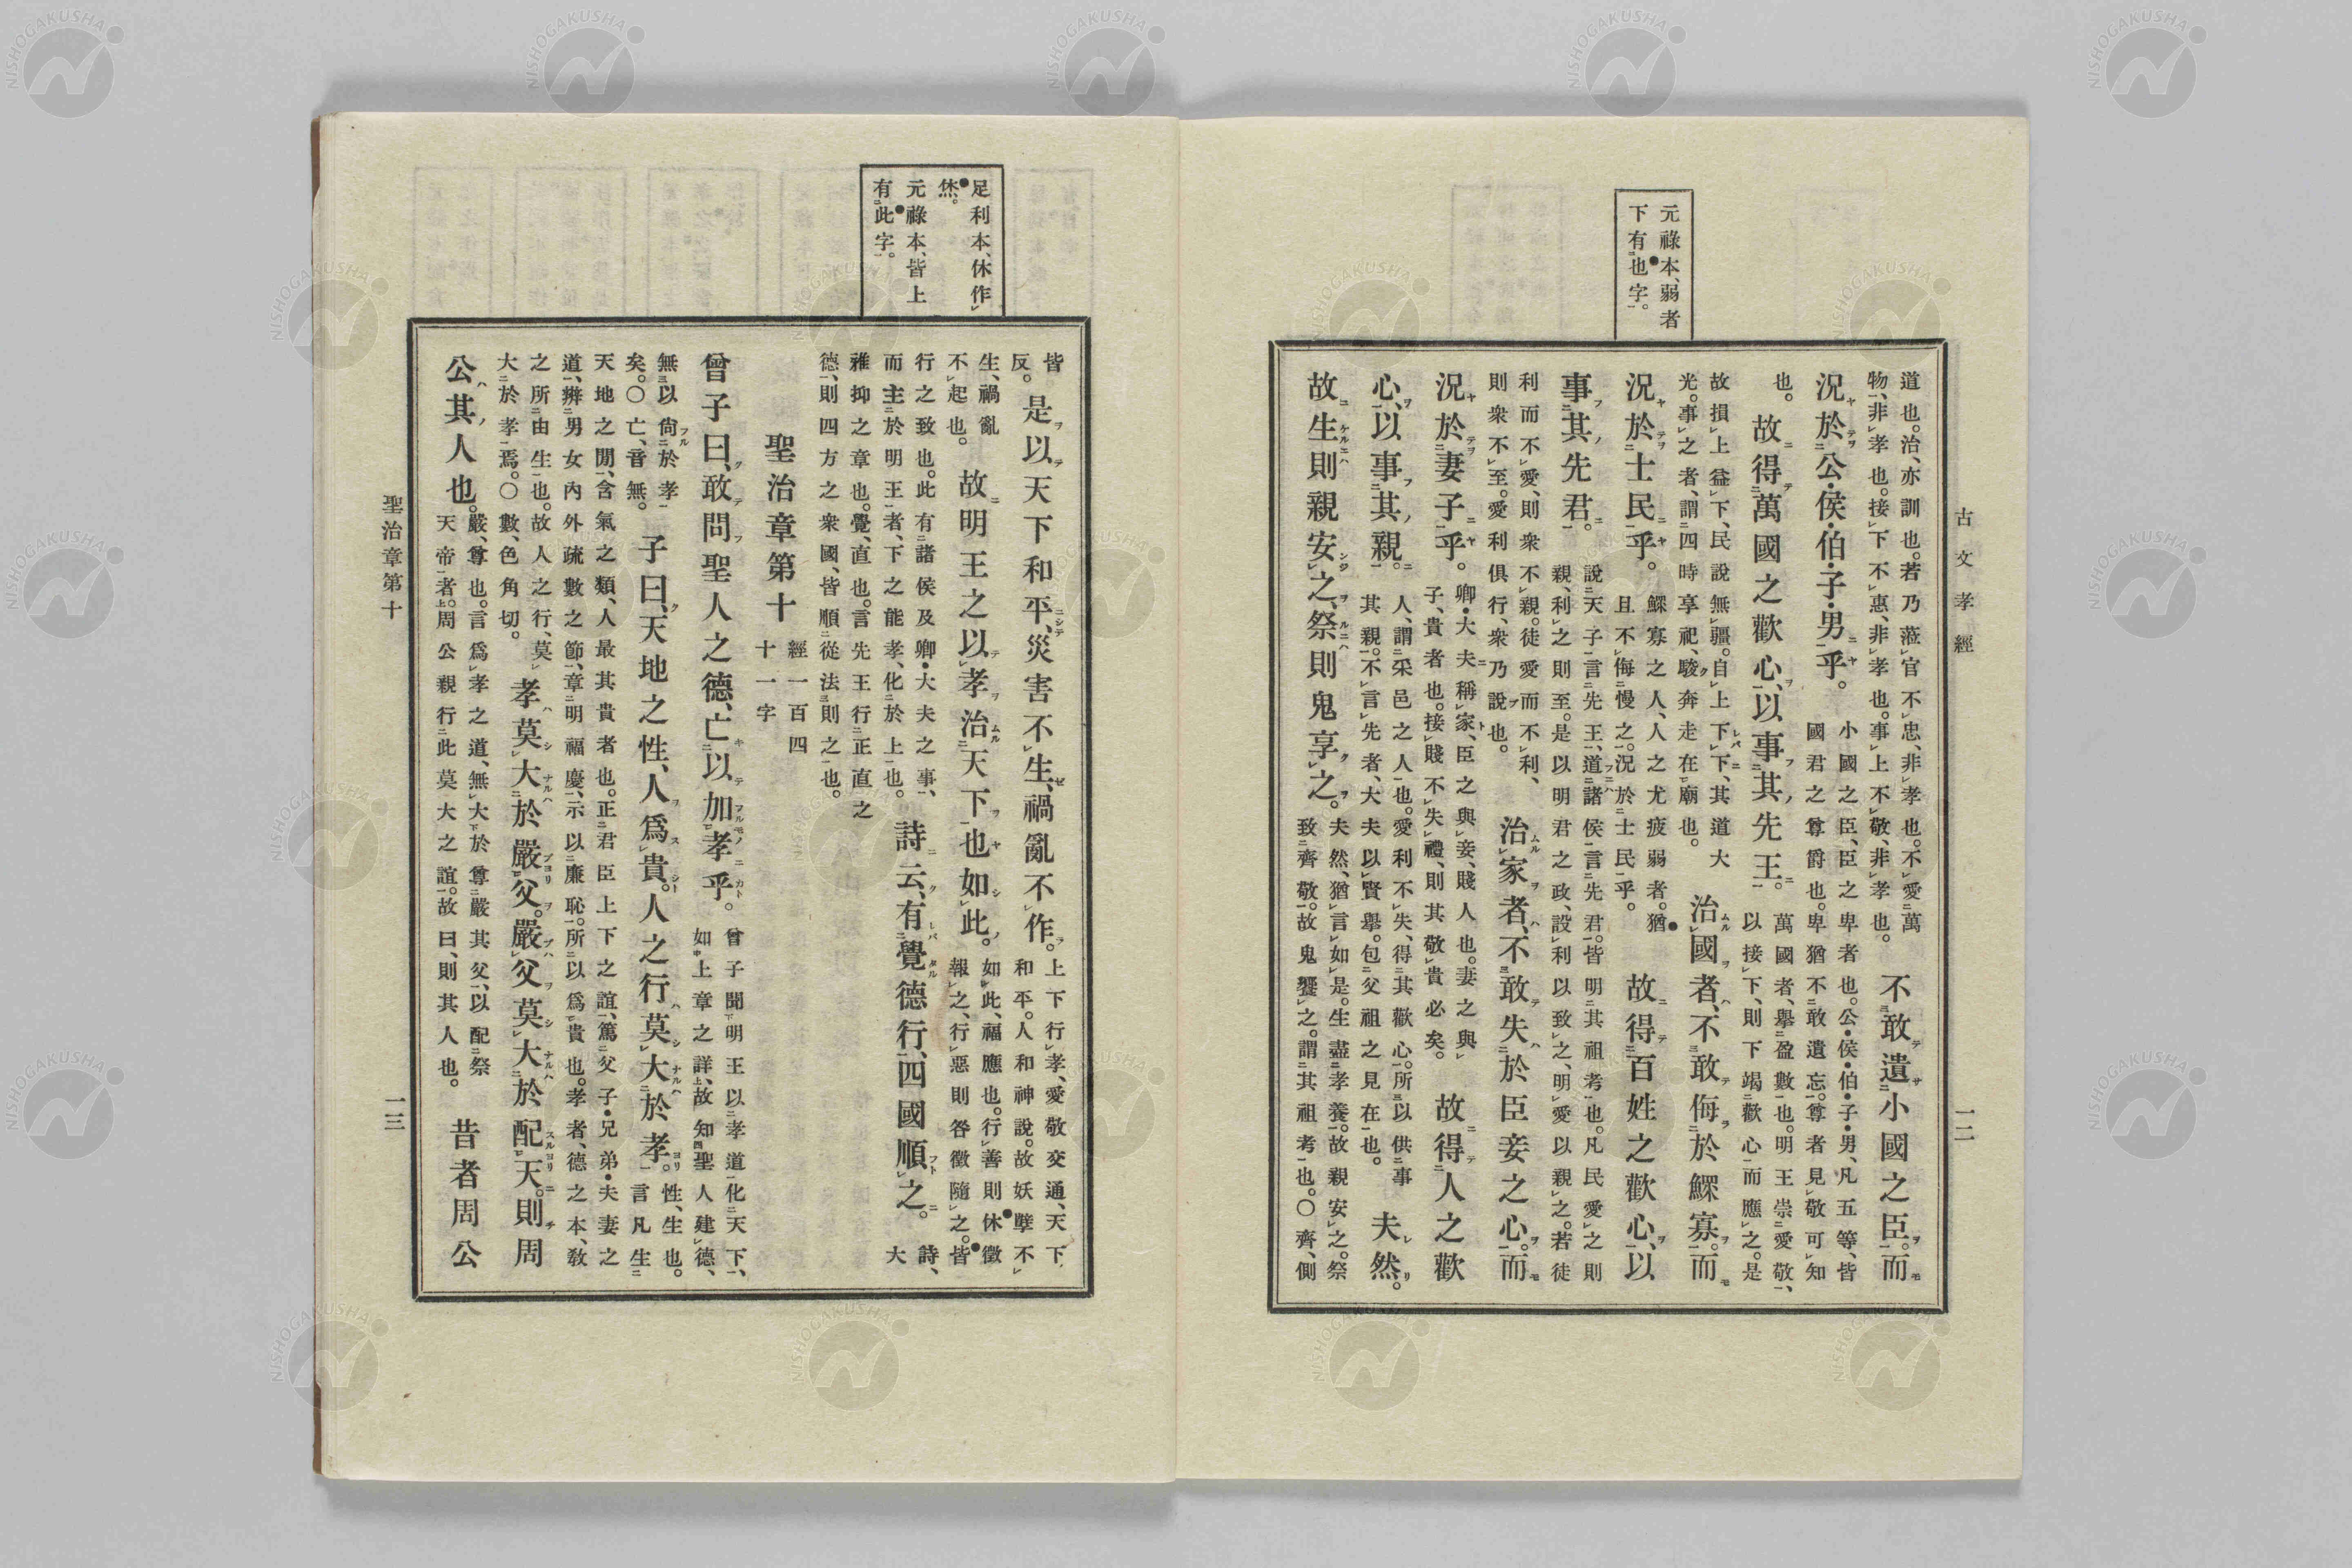 古文孝經
一二
元祿本、弱者
下有也字。
道也。治、亦訓也。若乃蒞官不忠、非孝也。不愛萬
物、非孝也。接下不惠、非孝也。事上不敬、非孝也。
不敢遺小國之臣。而
況於公・侯・伯・子・男乎。
小國之臣、臣之卑者也。公・侯・伯・子・男、凡五等、皆
國君之尊爵也。卑猶不敢遺忘。尊者見敬可知
也。
故得萬國之歡心、以事其先王。
萬國者、舉盈數也。明王崇愛敬、
以接下、則下竭歡心而應之。是
故損上益下、民說無疆。自上下下、其道大
光。事之者、謂四時享祀、駿奔走在廟也。
治國者、不敢侮於鰥寡。而
況於士民乎。
鰥寡之人、人之尤疲弱者。猶
且不侮慢之。況於士民乎。
故得百姓之歡心、以
事其先君。
說天子言先王、道諸侯言先君。皆明其祖考也。凡民愛之則
親、利之則至。是以明君之政、設利以致之、明愛以親之。若徒
利而不愛、則衆不親。徒愛而不利、
則衆不至。愛利俱行、衆乃說也。
治家者、不敢失於臣妾之心。而
況於妻子乎。
卿・大夫稱家、臣之與妾、賤人也。妻之與
子、貴者也。接賤不失禮、則其敬貴必矣。
故得人之歡
心、以事其親。
人、謂采邑之人也。愛利不失、得其歡心。所以供事
其親。不言先者、大夫以賢舉。包父祖之見在也。
夫然。
故生則親安之、祭則鬼享之。
夫然、猶言如是。生盡孝養。故親安之。祭
致齊敬。故鬼饗之。謂其祖考也。〇齊、側
足利本、休作
烋。
元祿本、皆上
有此字。
皆
反。
是以天下和平、災害不生、禍亂不作。
上下行孝、愛敬交通、天下
和平。人和神說。故妖孼不
生、禍亂
不起也。
故明王之以孝治天下也如此。
如此、福應也。行善則休徵
報之、行惡則咎徵隨之。皆
行之致也。此有諸侯及卿・大夫之事、
而主於明王者、下之能孝、化於上也。
詩云、有覺德行、四國順之。
詩、大
雅抑之章也。覺、直也。言先王行正直之
德、則四方之衆國、皆順從法則之也。
聖治章第十
經一百四
十一字
曾子曰、敢問聖人之德、亡以加孝乎。
曾子聞明王以孝道化天下、
如上章之詳、故知聖人建德、
無以尙於孝
矣。〇亡、音無。
子曰、天地之性、人爲貴。人之行莫大於孝。
性、生也。
言凡生
天地之閒、含氣之類、人最其貴者也。正君臣上下之誼、篤父子・兄弟・夫妻之
道、辨男女內外疏數之節、章明福慶、示以廉恥。所以爲貴也。孝者、德之本、敎
之所由生也。故人之行、莫
大於孝焉。〇數、色角切。
孝莫大於嚴父。嚴父莫大於配天。則周
公其人也。
嚴、尊也。言爲孝之道、無大於尊嚴其父、以配祭
天帝者。周公親行此莫大之誼。故曰、則其人也。
昔者周公
聖治章第十
一三